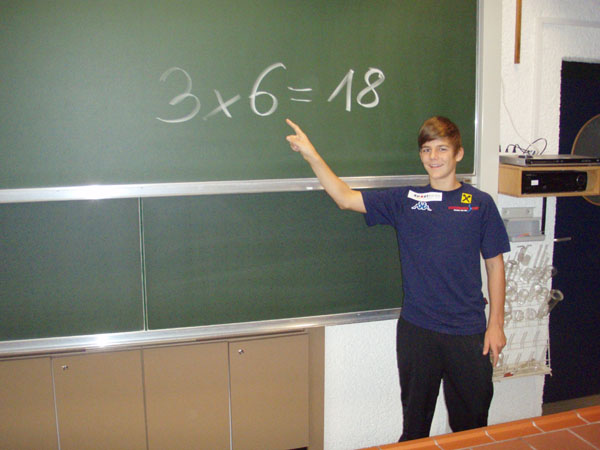 3 x 6 = 18